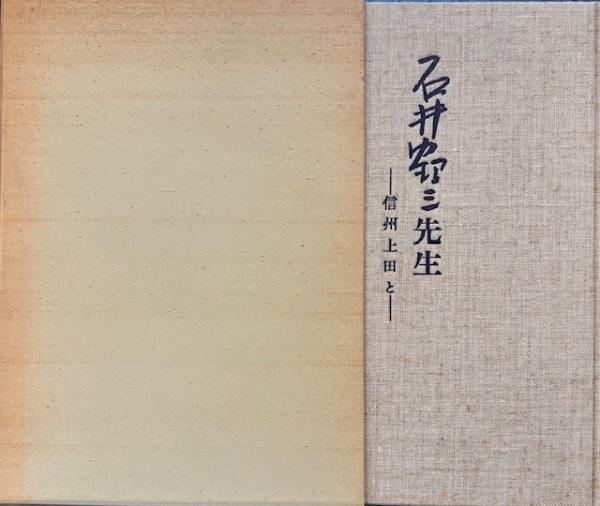 石井鶴三先生
―信州上田と―